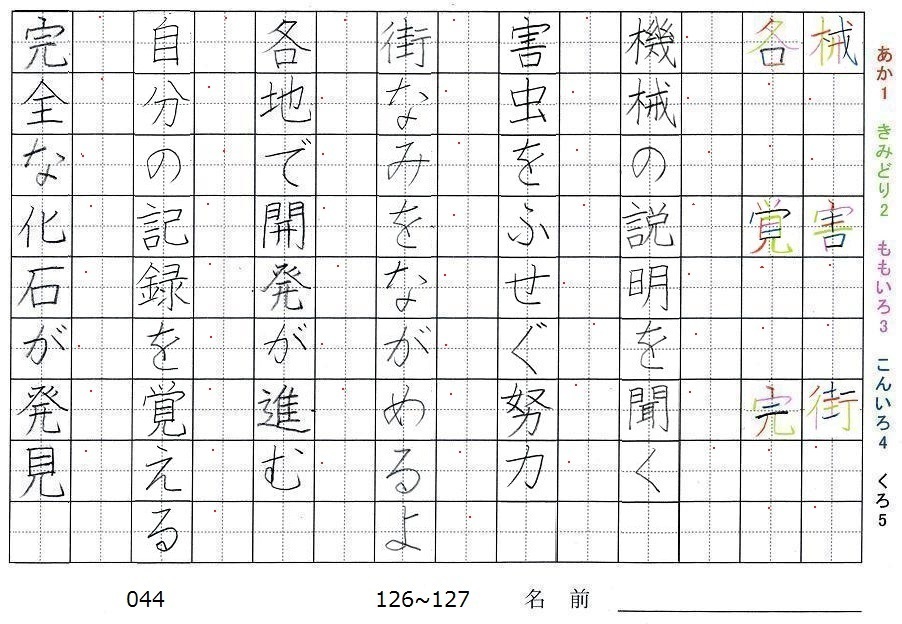 あか1 きみどり2 ももいろ3 こんいろ4 くろ5
械 害 街
各 覚 完
機械の説明を聞く
害虫をふせぐ努力
街なみをながめるよ
各地で開発が進む
自分の記録を覚える
完全な化石が発見
044 126~127 名前